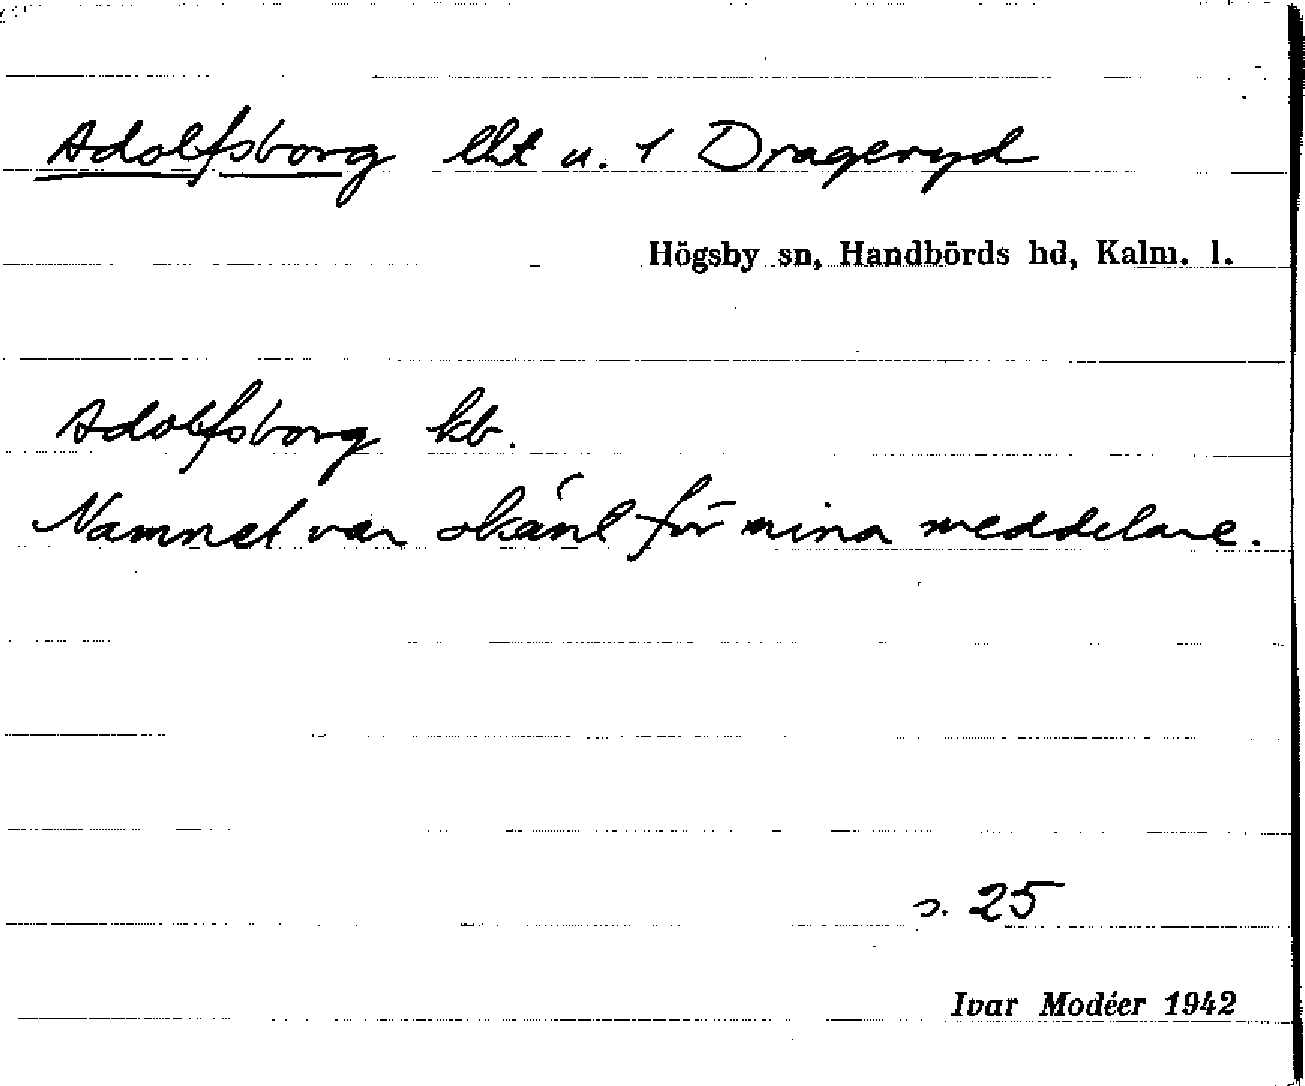 Adolfsborg lht u. 1 Drageryd
Högsby sn, Handbörds hd, Kalm. l.
Adolfsborg kb.
Namnet var okänt för mina meddelare.
s. 25
Ivar Modéer 1942